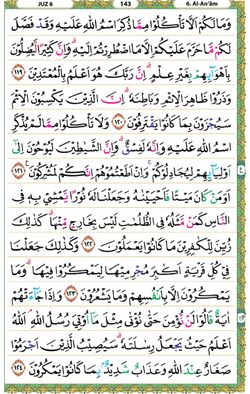 JUZ 8 143 6. Al-An'ām
وَمَا لَكُمْ اَلَّا تَأْكُلُوْا مِمَّا ذُكِرَ اسْمُ اللّٰهِ عَلَيْهِ وَقَدْ فَصَّلَ
لَكُمْ مَّا حَرَّمَ عَلَيْكُمْ اِلَّا مَا اضْطُرِرْتُمْ اِلَيْهِ ۗ وَاِنَّ كَثِيْرًا لَّيُضِلُّوْنَ
بِاَهْوَاۤىِٕهِمْ بِغَيْرِ عِلْمٍ ۗ اِنَّ رَبَّكَ هُوَ اَعْلَمُ بِالْمُعْتَدِيْنَ ۝١١٩
وَذَرُوْا ظَاهِرَ الْاِثْمِ وَبَاطِنَهٗ ۗ اِنَّ الَّذِيْنَ يَكْسِبُوْنَ الْاِثْمَ
سَيُجْزَوْنَ بِمَا كَانُوْا يَقْتَرِفُوْنَ ۝١٢٠ وَلَا تَأْكُلُوْا مِمَّا لَمْ يُذْكَرِ
اسْمُ اللّٰهِ عَلَيْهِ وَاِنَّهٗ لَفِسْقٌ ۗ وَاِنَّ الشَّيٰطِيْنَ لَيُوْحُوْنَ اِلٰٓى
اَوْلِيَاۤىِٕهِمْ لِيُجَادِلُوْكُمْ ۚ وَاِنْ اَطَعْتُمُوْهُمْ اِنَّكُمْ لَمُشْرِكُوْنَ ۝١٢١
اَوَمَنْ كَانَ مَيْتًا فَاَحْيَيْنٰهُ وَجَعَلْنَا لَهٗ نُوْرًا يَّمْشِيْ بِهٖ فِى
النَّاسِ كَمَنْ مَّثَلُهٗ فِى الظُّلُمٰتِ لَيْسَ بِخَارِجٍ مِّنْهَا ۗ كَذٰلِكَ
زُيِّنَ لِلْكٰفِرِيْنَ مَا كَانُوْا يَعْمَلُوْنَ ۝١٢٢ وَكَذٰلِكَ جَعَلْنَا
فِيْ كُلِّ قَرْيَةٍ اَكٰبِرَ مُجْرِمِيْهَا لِيَمْكُرُوْا فِيْهَا ۗ وَمَا
يَمْكُرُوْنَ اِلَّا بِاَنْفُسِهِمْ وَمَا يَشْعُرُوْنَ ۝١٢٣ وَاِذَا جَاۤءَتْهُمْ
اٰيَةٌ قَالُوْا لَنْ نُّؤْمِنَ حَتّٰى نُؤْتٰى مِثْلَ مَآ اُوْتِيَ رُسُلُ اللّٰهِ ۘ اَللّٰهُ
اَعْلَمُ حَيْثُ يَجْعَلُ رِسٰلَتَهٗ ۗ سَيُصِيْبُ الَّذِيْنَ اَجْرَمُوْا
صَغَارٌ عِنْدَ اللّٰهِ وَعَذَابٌ شَدِيْدٌۢ بِمَا كَانُوْا يَمْكُرُوْنَ ۝١٢٤